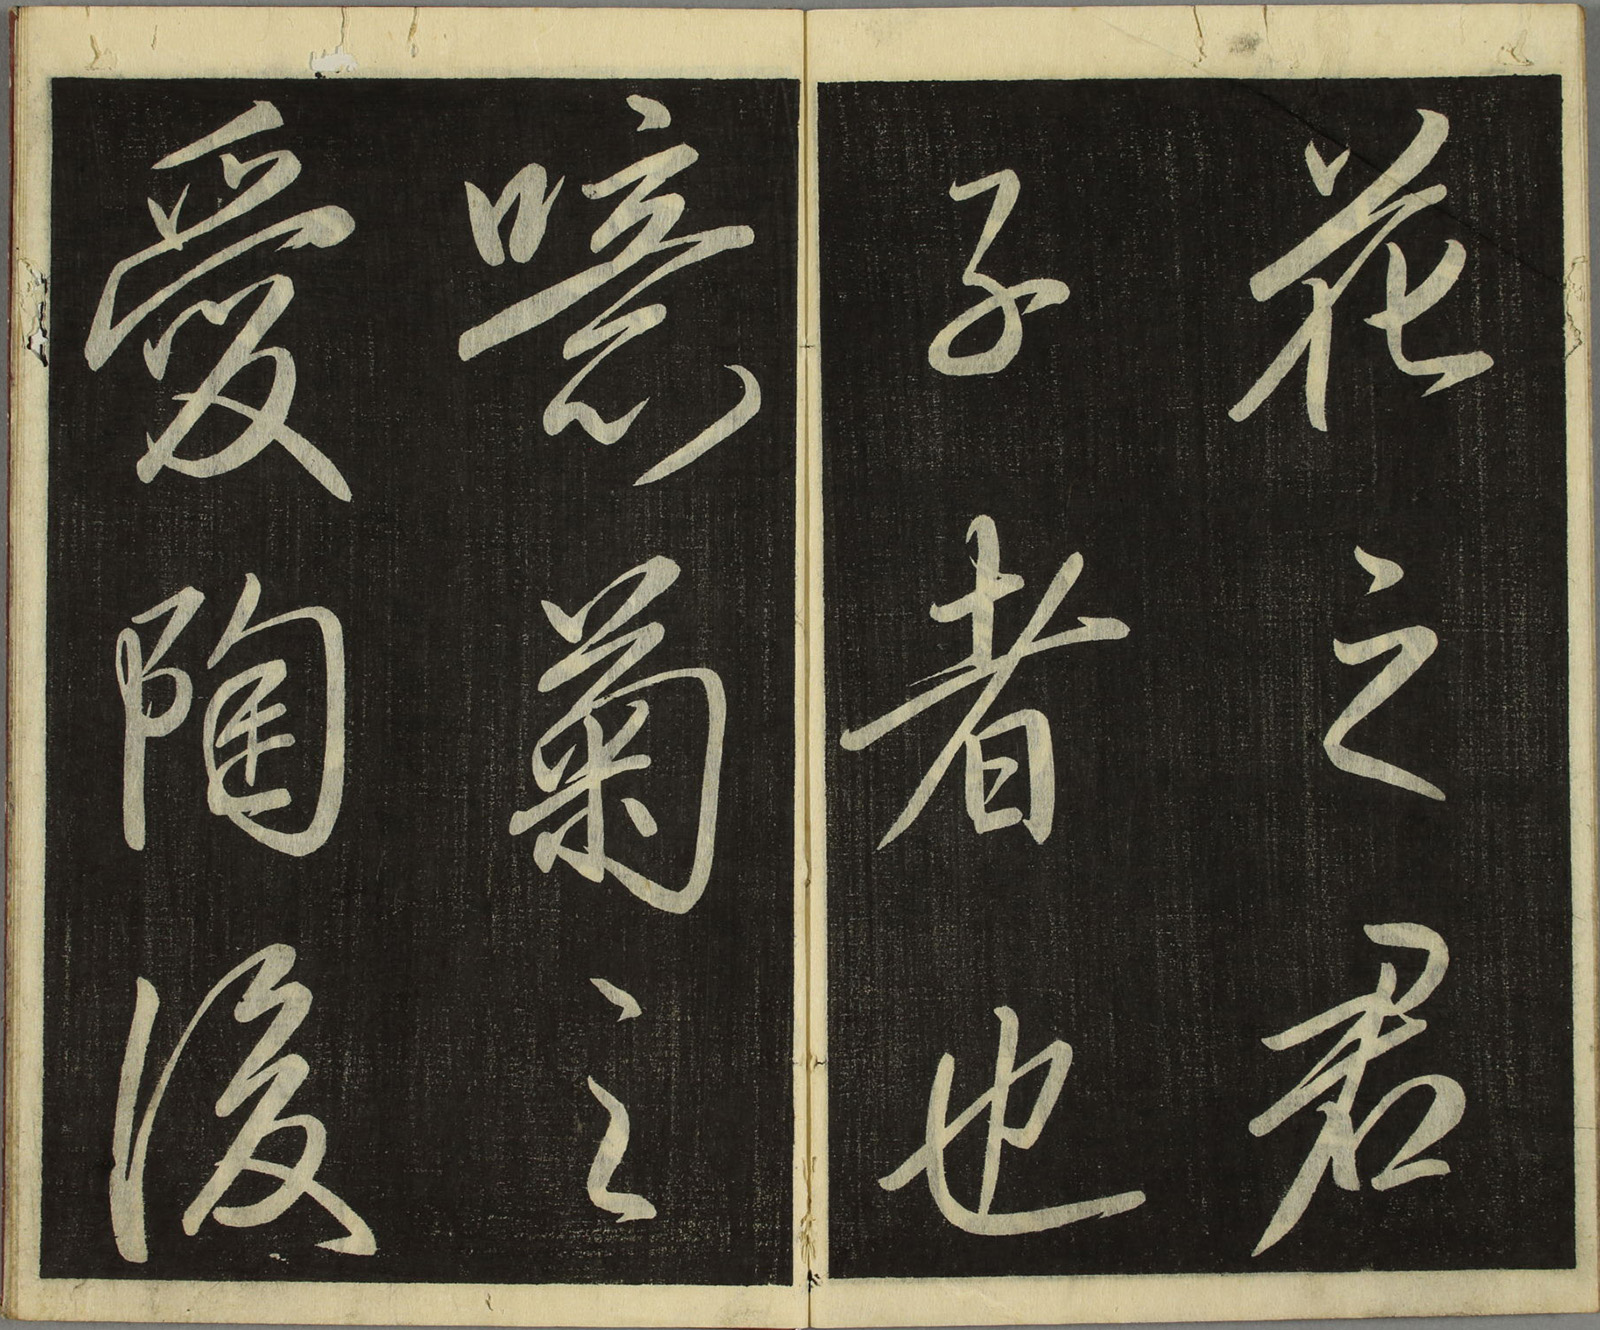 花之君
子者也
噫菊之
愛陶後